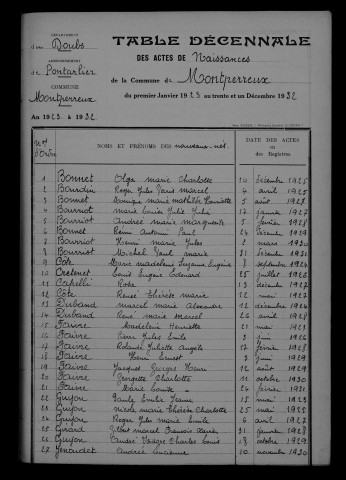 DÉPARTEMENT
du Doubs
ARRONDISSEMENT
de Pontarlier
COMMUNE
Montperreux
An 1923 à 1932
TABLE DÉCENNALE
DES ACTES DE Naissances
de la Commune de Montperreux
du premier Janvier 1923 au trente et un Décembre 1932
Nos d'Ordre NOMS ET PRÉNOMS DES nouveaux-nés DATE DES ACTES et des Registres
1 Bonnet Olga Marie Charlotte 10 décembre 1925
2 Bourdin Roger Jules Marcel 4 avril 1925
3 Bonnet Marie Mathilde Henriette 5 août 1927
4 Bourriot Marie Louise Julie 17 janvier 1927
5 Bourriot Andrée Marie Marguerite 5 février 1928
6 Bonnet Rémi Antonin Paul 24 décembre 1929
7 Bourriot Henri Marie Jules 2 mars 1930
8 Bourriot Michel Paul Marie 31 décembre 1931
9 Côte Marie Madeleine Suzanne Eugénie 8 septembre 1924
10 Louis Eugène Edouard 25 juillet 1926
11 Rosa 13 décembre 1927
12 Côte Renée Thérèse Marie 12 mai 1927
13 Duband Marcel Marie Alexandre 12 décembre 1924
14 Duband René Marie Marcel 26 avril 1928
15 Faivre Madeleine Henriette 21 mai 1923
16 Faivre Jules Emile 3 juin 1926
17 Faivre Rolande Juliette Angèle 17 février 1928
18 Faivre Henri Ernest 3 juin 1929
19 Faivre Jacques Georges Henri 12 août 1929
20 Faivre Georgette Charlotte 11 octobre 1930
21 Faivre Marie Louise 24 février 1931
22 Guyon Paule Emilie Jeanne 15 mai 1923
23 Guyon Nicole Marie Thérèse Charlotte 25 mai 1925
24 Guyon Roger Jules Marie Emile 6 avril 1927
25 Girard Gilbert Marcel François Xavier 31 janvier 1928
26 Guyon André Charles Louis 18 octobre 1929
27 Jenoudet Andrée Lucienne 10 novembre 1930